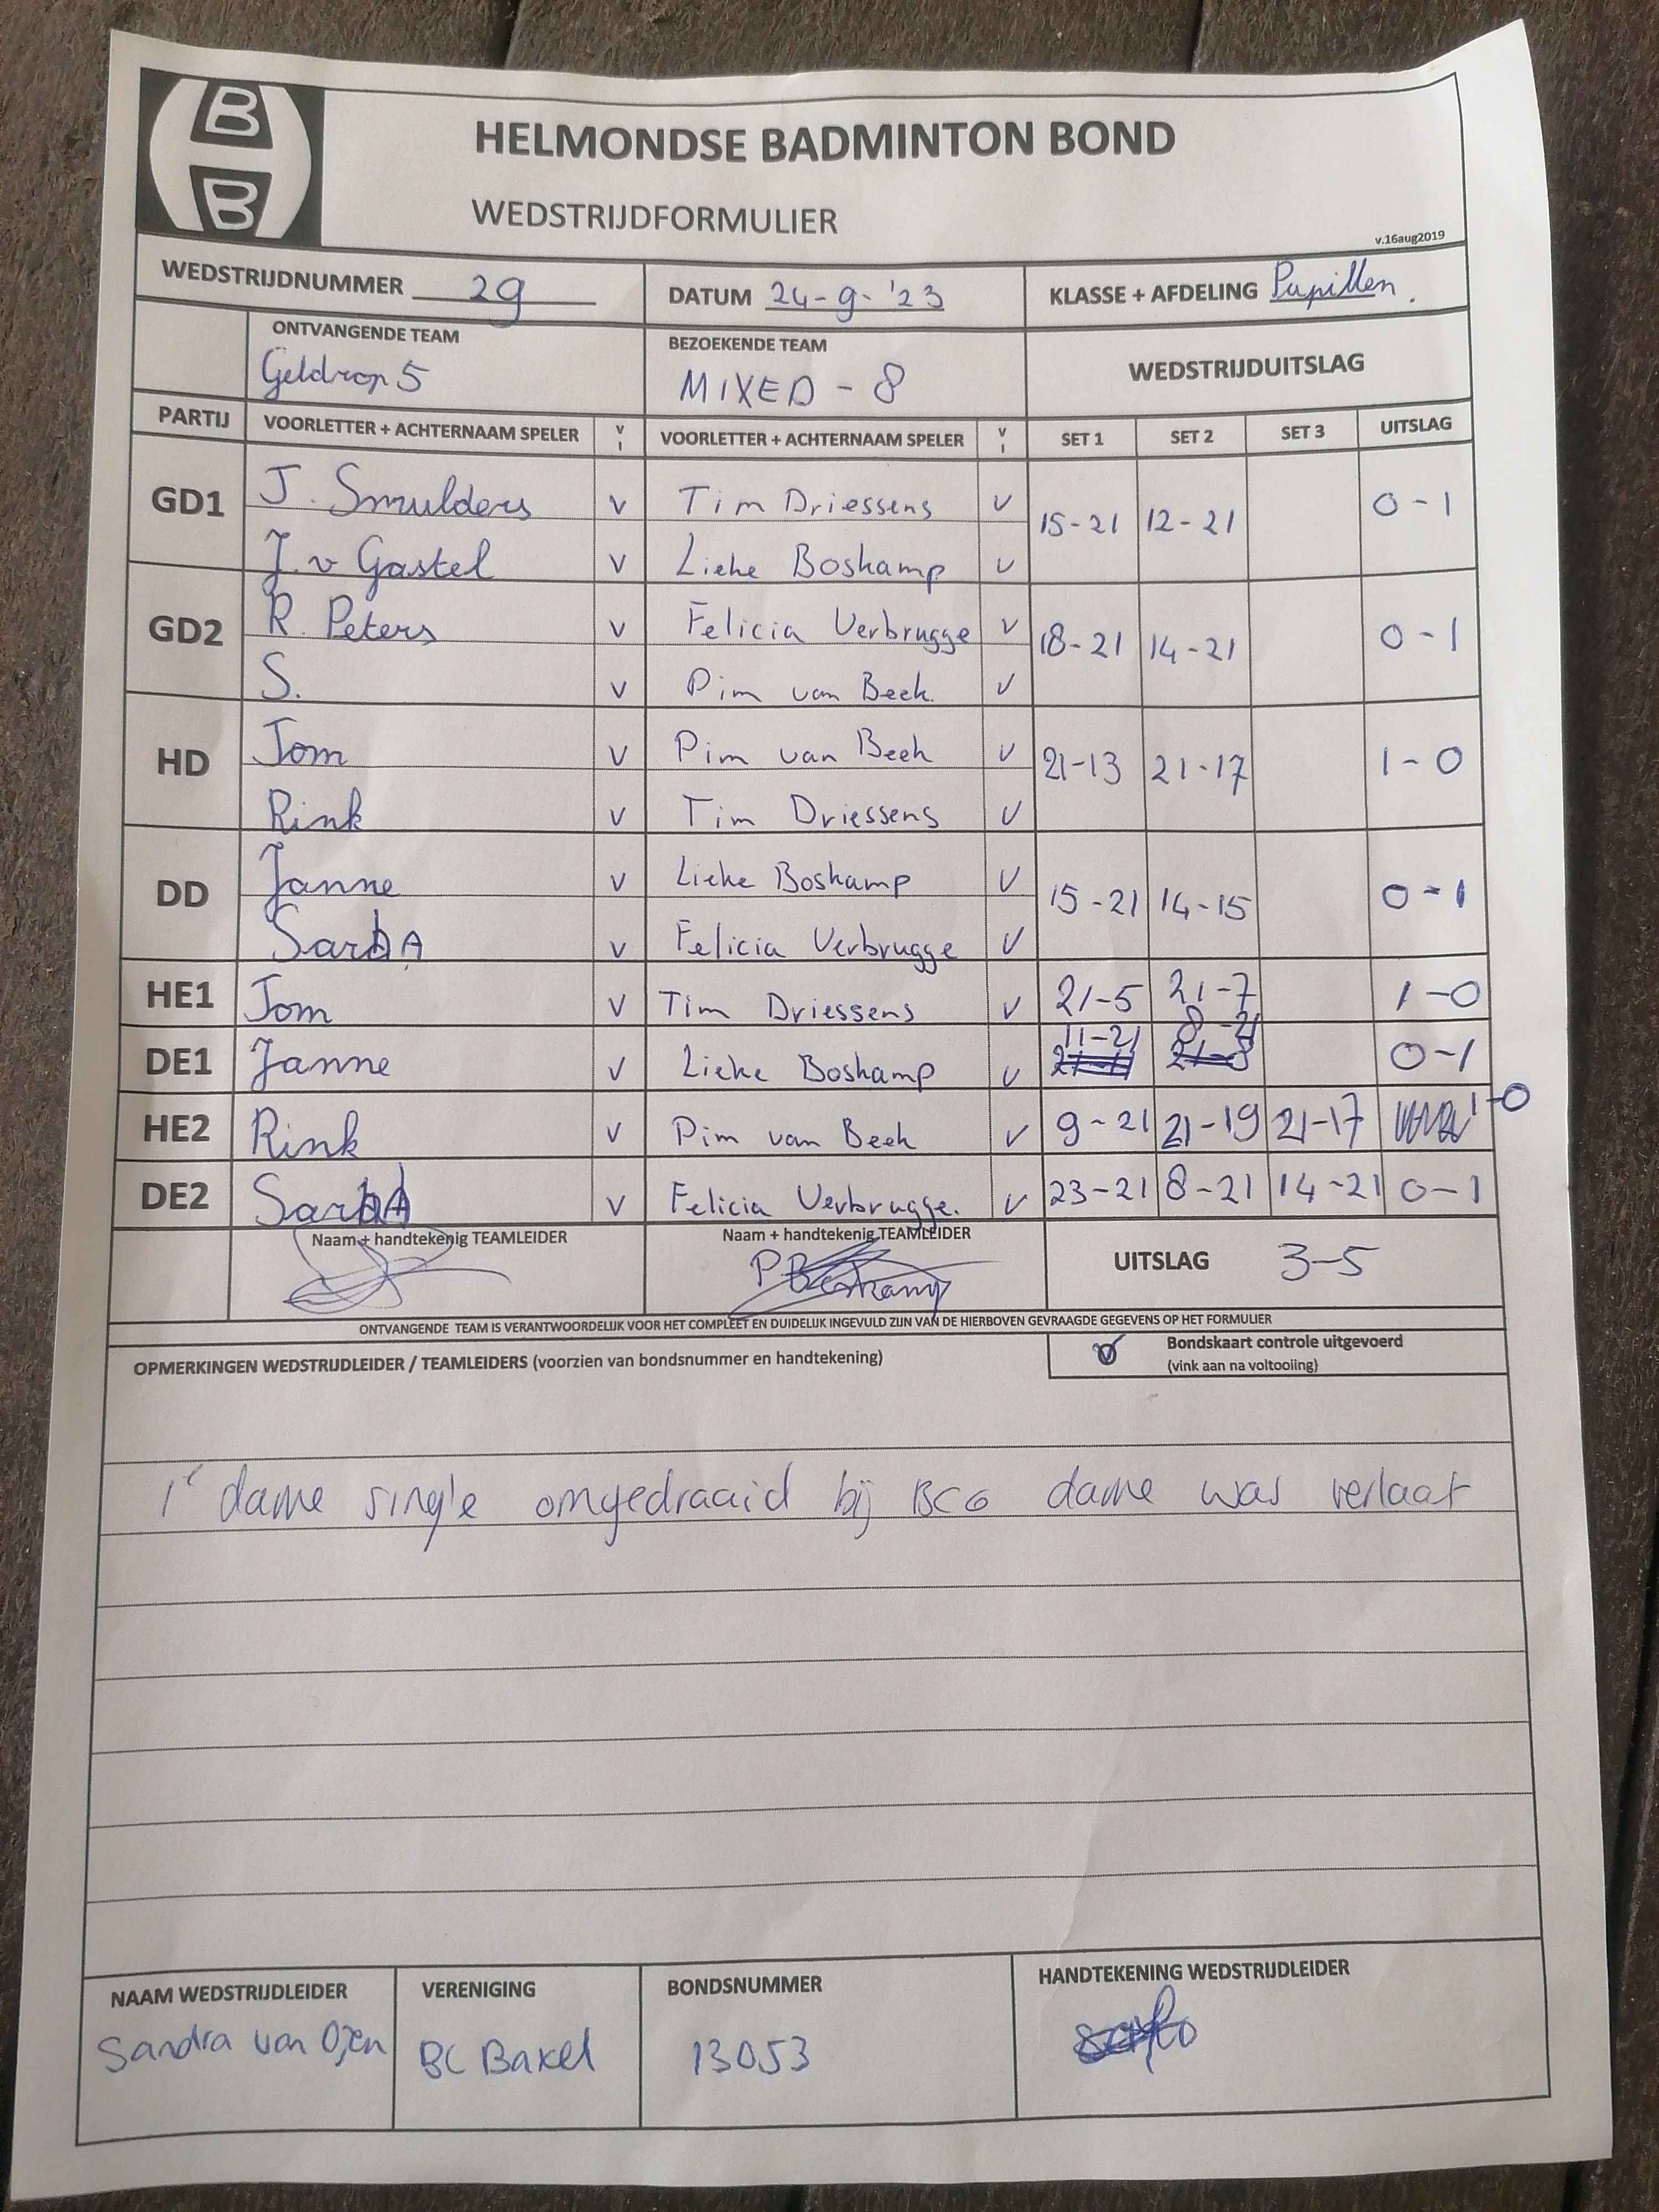 B
B
HELMONDSE BADMINTON BOND
WEDSTRIJDFORMULIER
v.16aug2019
WEDSTRIJDNUMMER 29 DATUM 24-9-'23 KLASSE + AFDELING Pupillen.
ONTVANGENDE TEAM BEZOEKENDE TEAM WEDSTRIJDUITSLAG
Geldrop 5 MIXED - 8
PARTIJ VOORLETTER + ACHTERNAAM SPELER V I VOORLETTER + ACHTERNAAM SPELER V I SET 1 SET 2 SET 3 UITSLAG
GD1 J. Smulders V Tim Driessens V 15-21 12-21 0-1
J. v Gastel V Lieke Boskamp V
GD2 R. Peters V Felicia Verbrugge V 18-21 14-21 0-1
S. V Pim van Beek. V
HD Jom V Pim van Beek V 21-13 21-17 1-0
Rink V Tim Driessens V
DD Janne V Lieke Boskamp V 15-21 14-15 0-1
V Felicia Verbrugge V
HE1 Jom V Tim Driessens V 21-5 21-7 1-0
DE1 Janne V Lieke Boskamp V 11-21 8-21 0-1
HE2 Rink V Pim van Beek V 9-21 21-19 21-17 1-0
DE2 V Felicia Verbrugge. V 23-21 8-21 14-21 0-1
Naam + handtekenig TEAMLEIDER Naam + handtekenig TEAMLEIDER UITSLAG 3-5
P Boskamp
ONTVANGENDE TEAM IS VERANTWOORDELIJK VOOR HET COMPLEET EN DUIDELIJK INGEVULD ZIJN VAN DE HIERBOVEN GEVRAAGDE GEGEVENS OP HET FORMULIER
OPMERKINGEN WEDSTRIJDLEIDER / TEAMLEIDERS (voorzien van bondsnummer en handtekening) V Bondskaart controle uitgevoerd
(vink aan na voltooiing)
1e dame single omgedraaid bij BCG dame was verlaat
NAAM WEDSTRIJDLEIDER VERENIGING BONDSNUMMER HANDTEKENING WEDSTRIJDLEIDER
Sandra van Ojen BC Bakel 13053